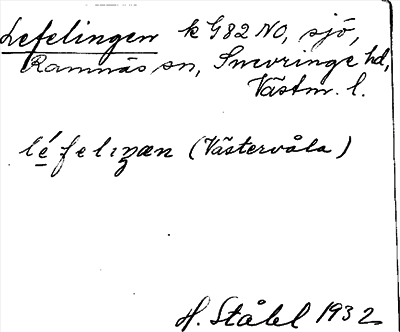 Lefelingen k G82 NO, sjö,
Ramnäs sn, Snevringe hd,
Västm. l.
léfelɪŋæn (Västervåla)
H. Ståhl 1932